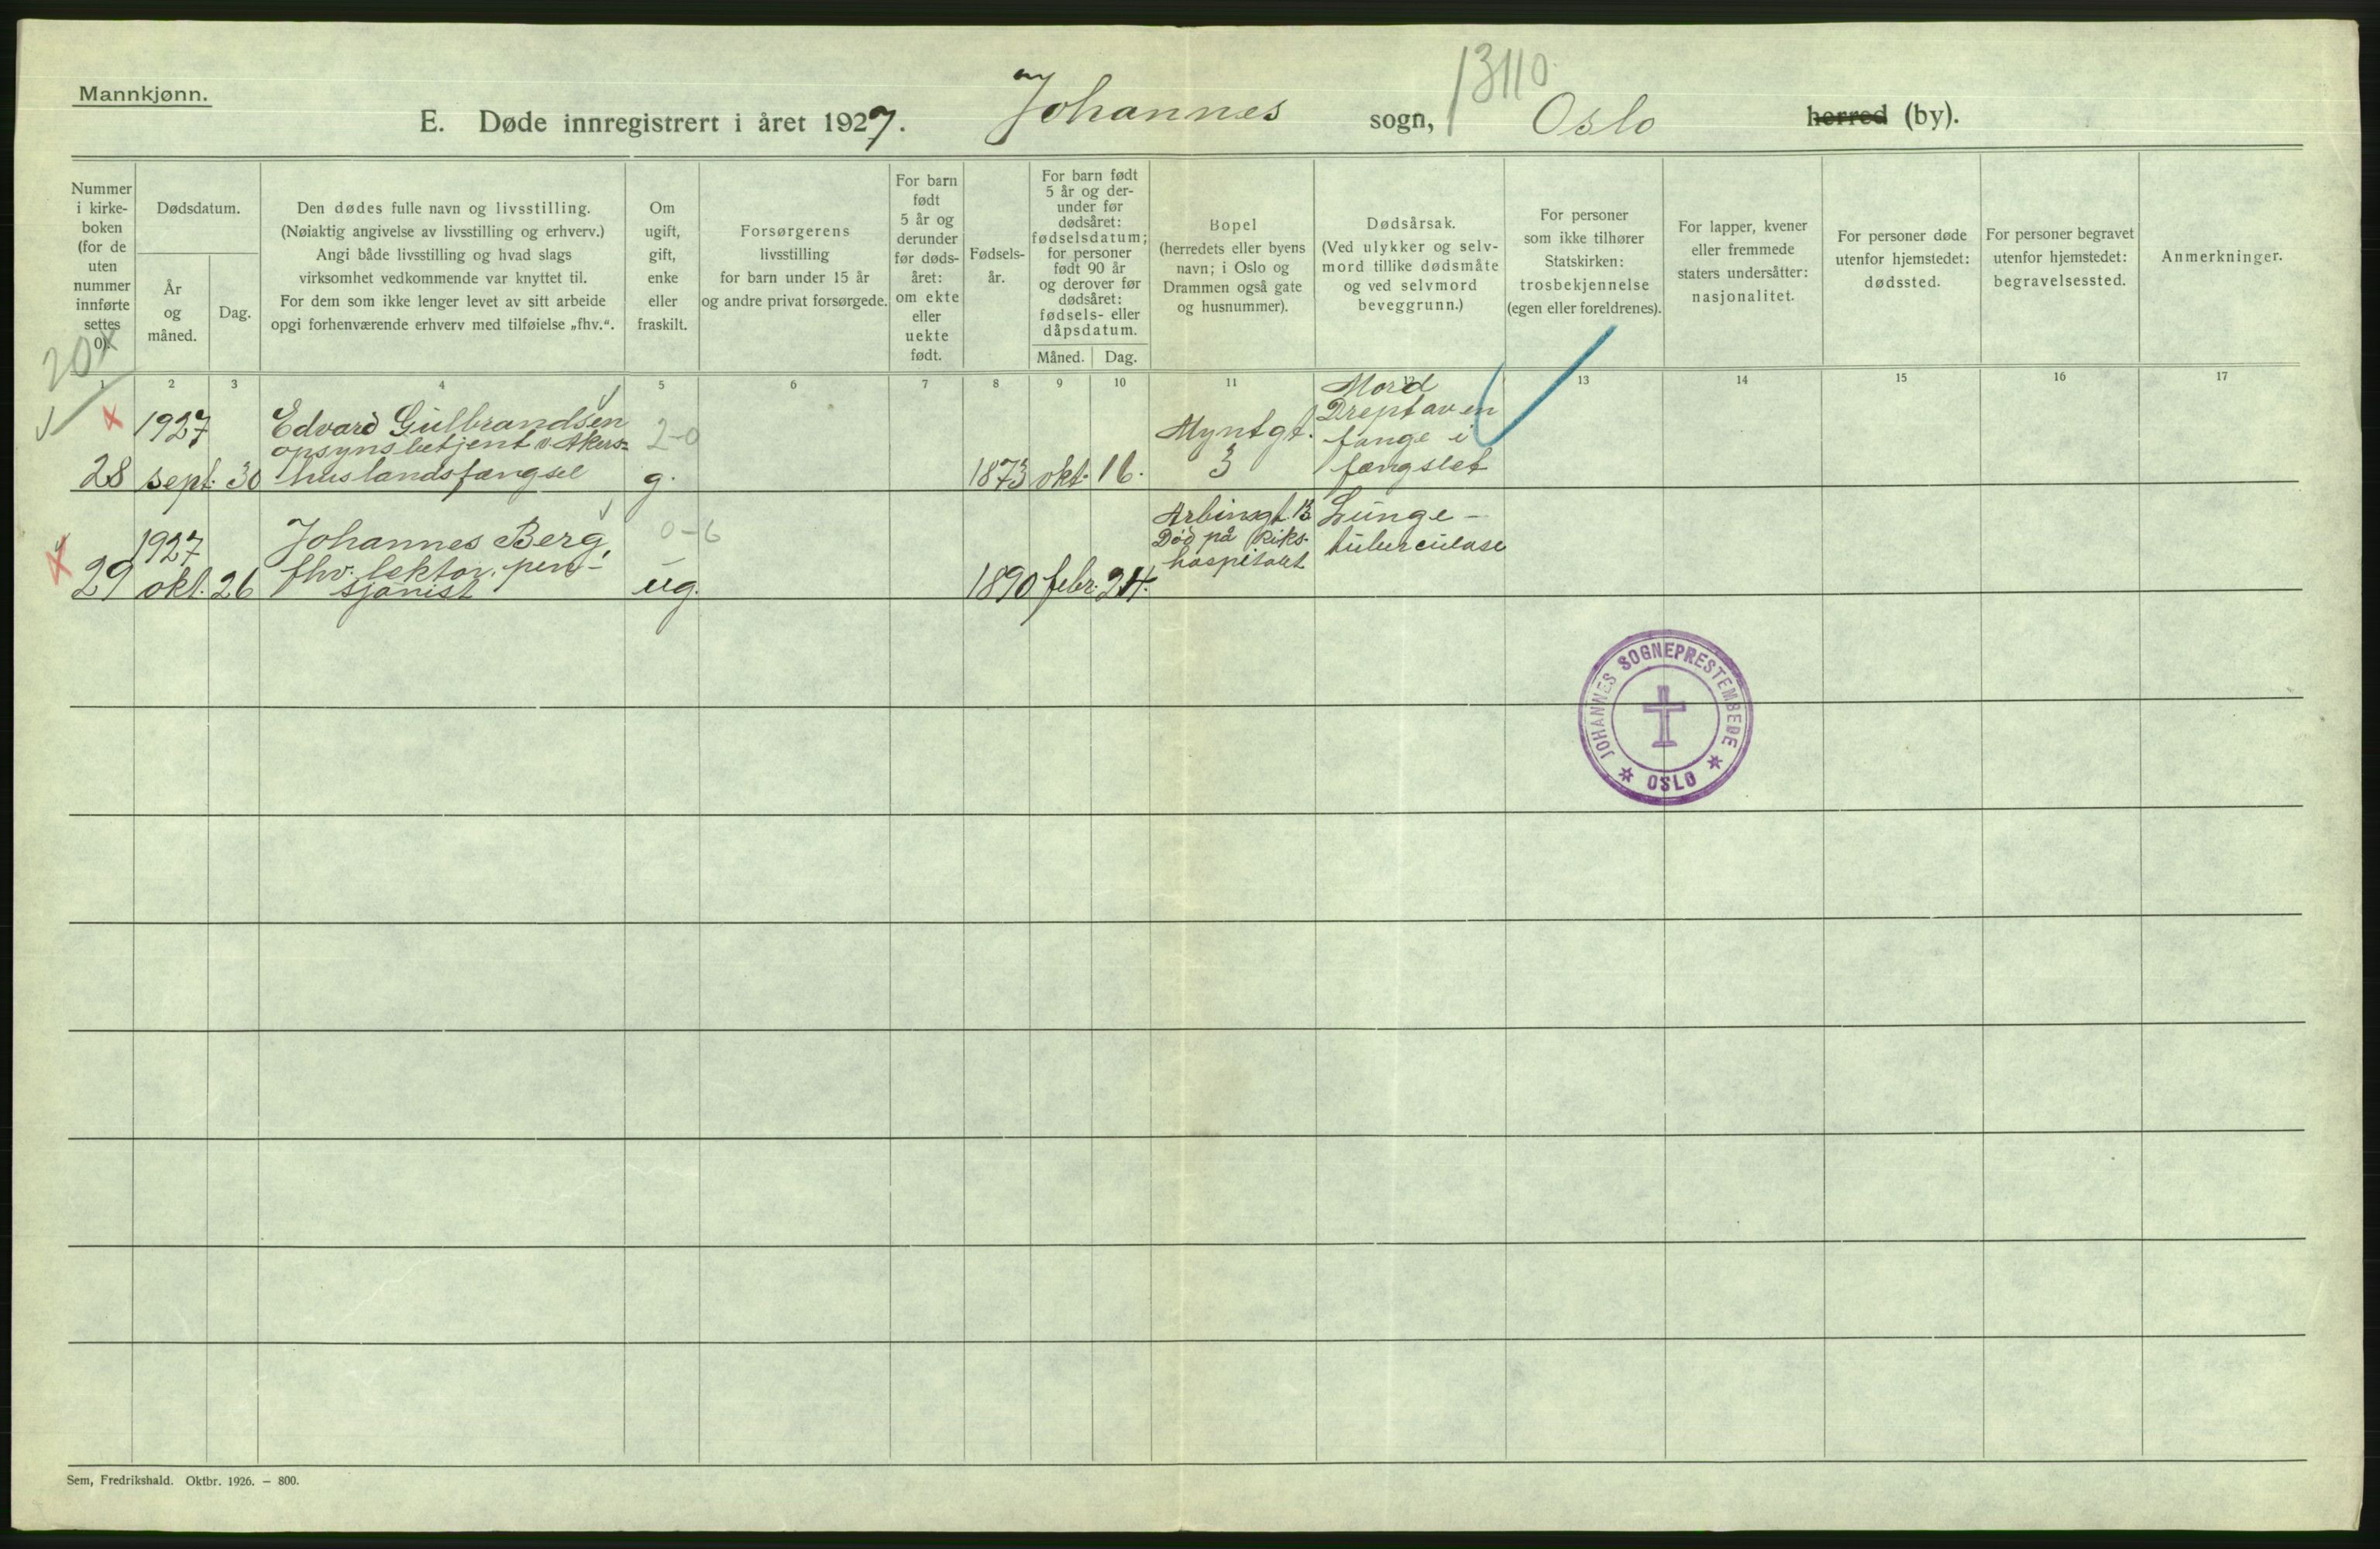 Mannkjønn.
13110
E. Døde innregistrert i året 1927. Johannes sogn, Oslo herred (by).
Nummer
i kirke-
boken
(for de
uten
nummer
innførte
settes
0).
Dødsdatum.
År
og
måned.
Dag.
Den dødes fulle navn og livsstilling.
(Nøiaktig angivelse av livsstilling og erhverv.)
Angi både livsstilling og hvad slags
virksomhet vedkommende var knyttet til.
For dem som ikke lenger levet av sitt arbeide
opgi forhenværende erhverv med tilføielse „fhv.“.
Om
ugift,
gift,
enke
eller
fraskilt.
Forsørgerens
livsstilling
for barn under 15 år
og andre privat forsørgede.
For barn
født
5 år og
derunder
før døds-
året:
om ekte
eller
uekte
født.
Fødsels-
år.
For barn født
5 år og der-
under før
dødsåret:
fødselsdatum;
for personer
født 90 år
og derover før
dødsåret:
fødsels- eller
dåpsdatum.
Måned. Dag.
Bopel
(herredets eller byens
navn; i Oslo og
Drammen også gate
og husnummer).
Dødsårsak.
(Ved ulykker og selv-
mord tillike dødsmåte
og ved selvmord
beveggrunn.)
For personer
som ikke tilhører
Statskirken:
trosbekjennelse
(egen eller foreldrenes).
For lapper, kvener
eller fremmede
staters undersåtter:
nasjonalitet.
For personer døde
utenfor hjemstedet:
dødssted.
For personer begravet
utenfor hjemstedet:
begravelsessted.
Anmerkninger.
1 2 3 4 5 6 7 8 9 10 11 12 13 14 15 16 17
28
1927
sept. 30
Edvard Gulbrandsen
opsynsbetjent v Akers-
huslandsfængsel
2-0
g.
1873 okt. 16.
Myntgt.
3
Mord
Drept av en
fange i
fængslet
29
1927
okt. 26
Johannes Berg,
fhv. lektor, pen-
sjonist
0-6
ug.
1890 febr. 24.
Arbinsgt. 13
Død på Riks-
hospitalet
Lunge-
tuberculose
JOHANNES SOGNEPRESTEMBEDE
OSLO
Sem, Fredrikshald. Oktbr. 1926. — 800.